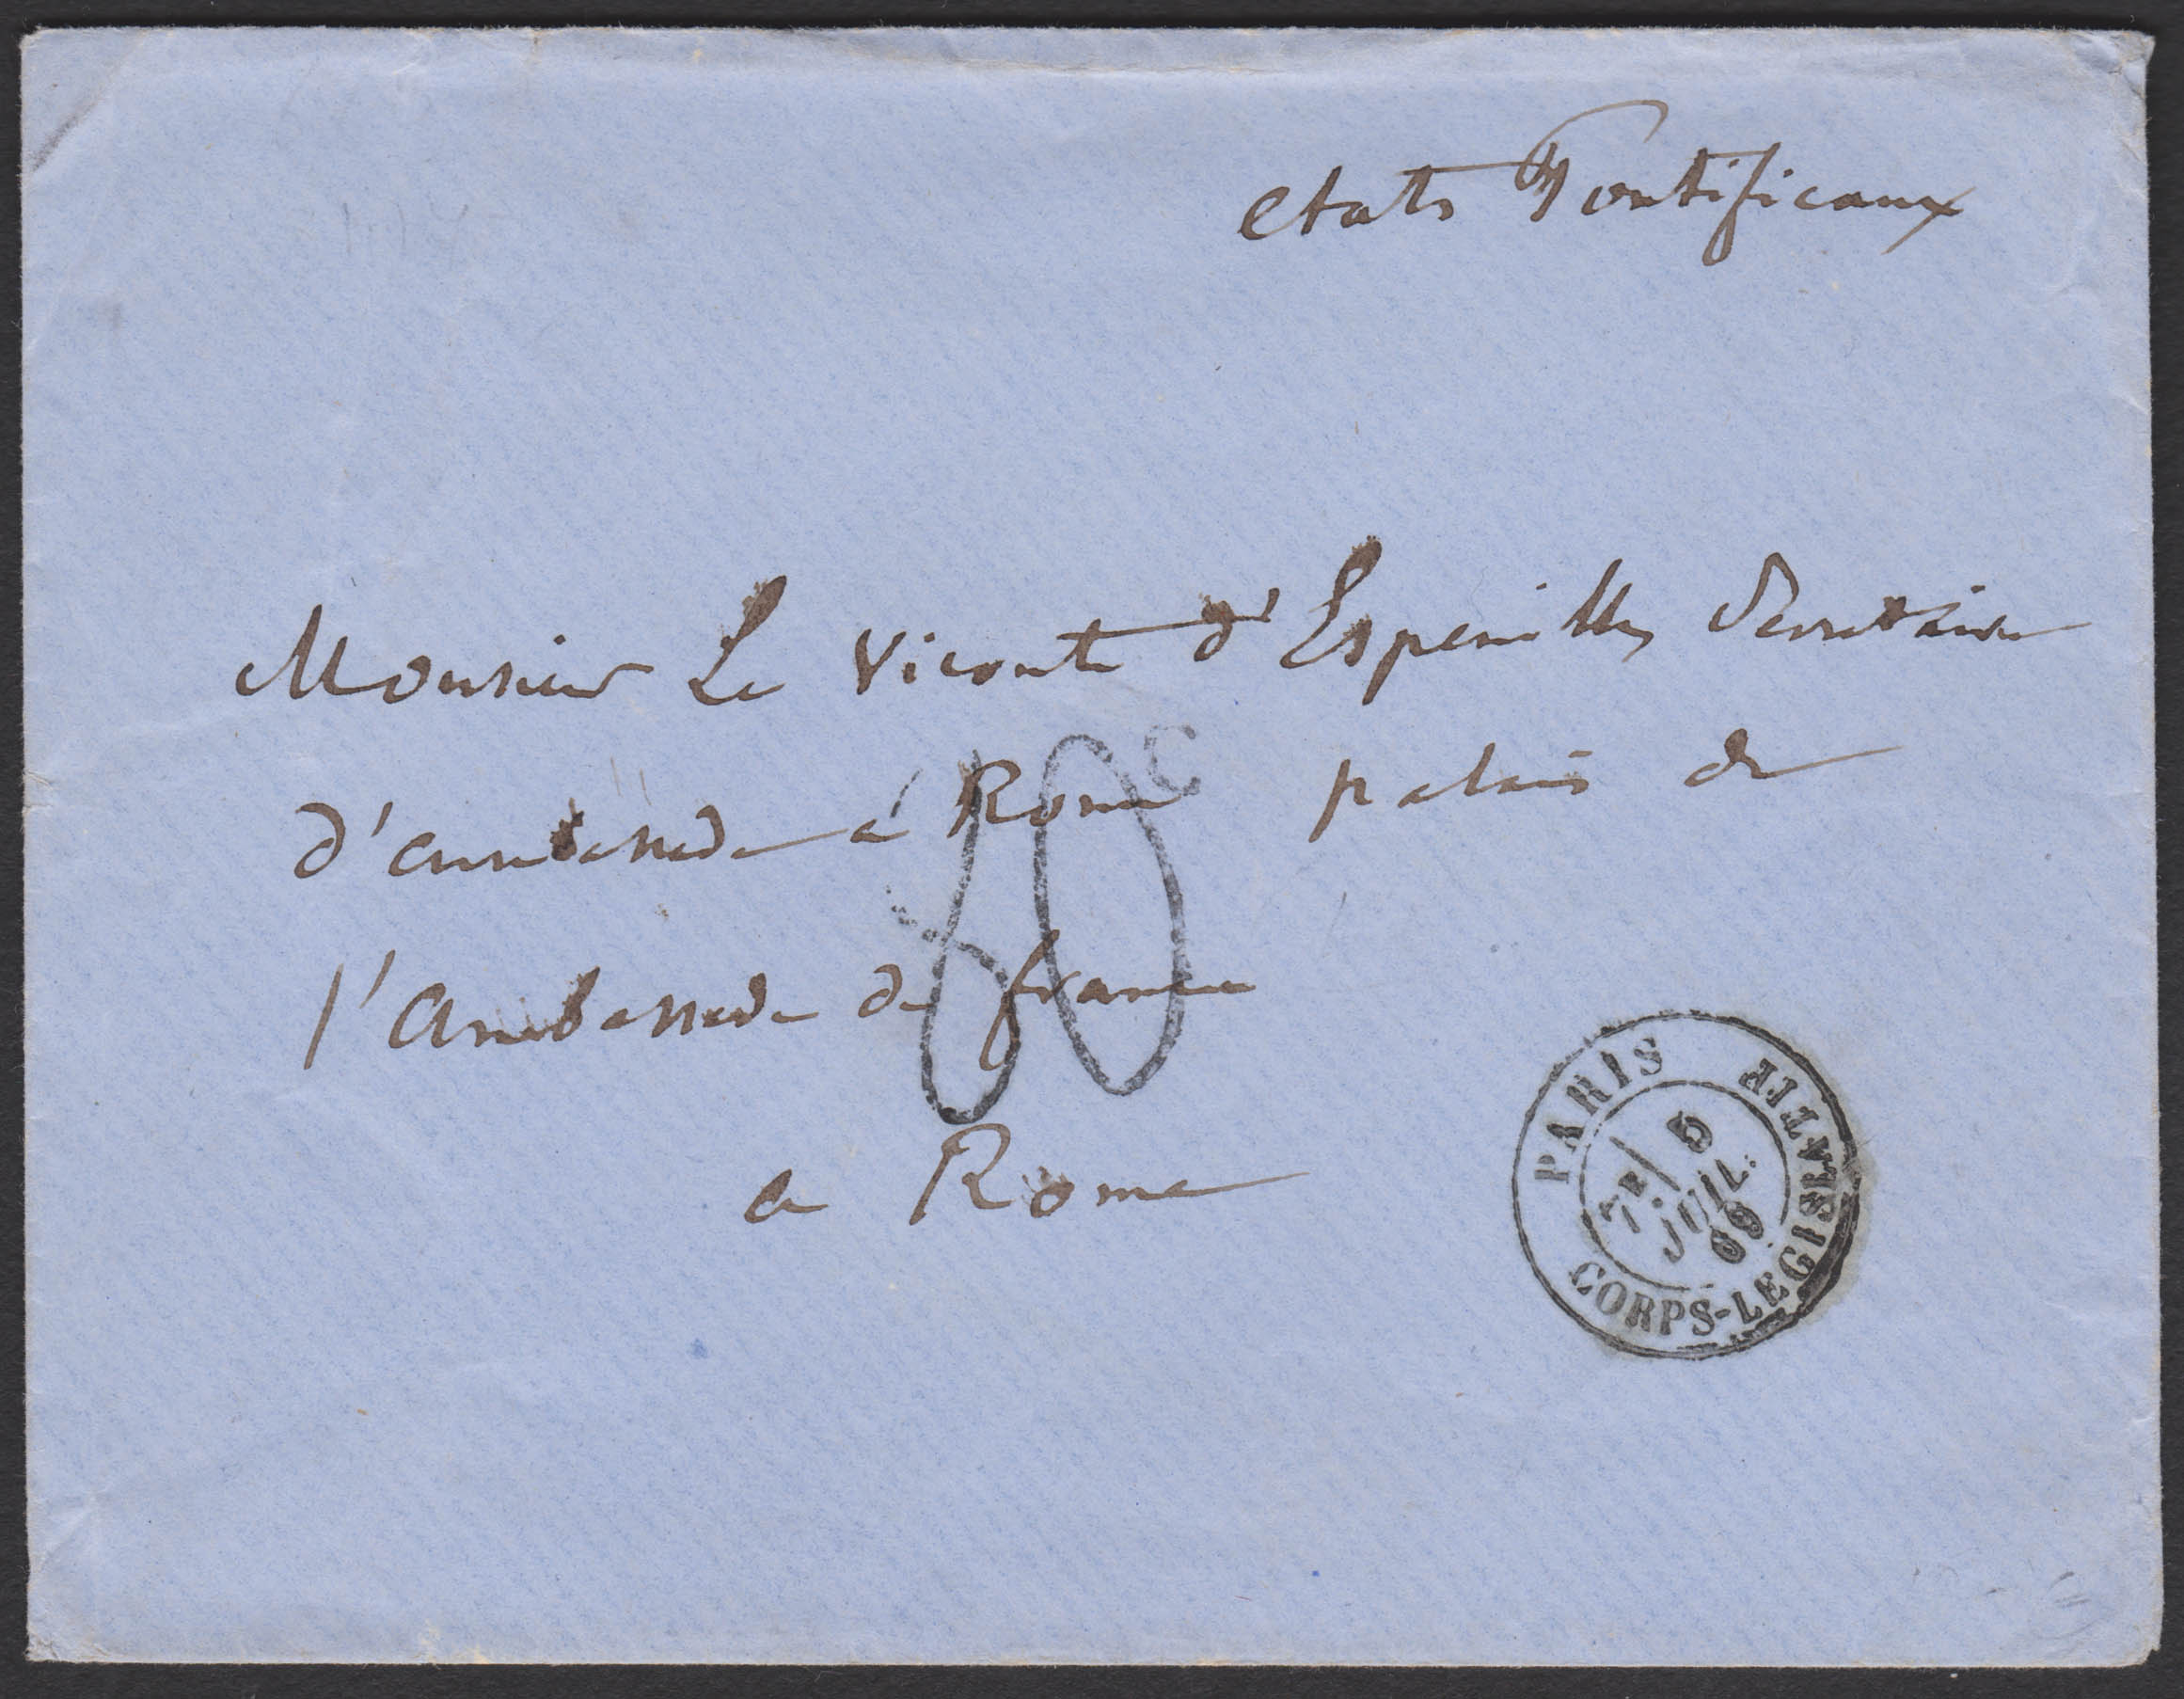 etats Pontificaux
Monsieur Le Vicomte d'Espeuilles Secretaire
d'ambassade a Rome palais de
l'Ambassade de france
a Rome
80c
PARIS
CORPS-LEGISLATIF
7E
5
JUIL.
69